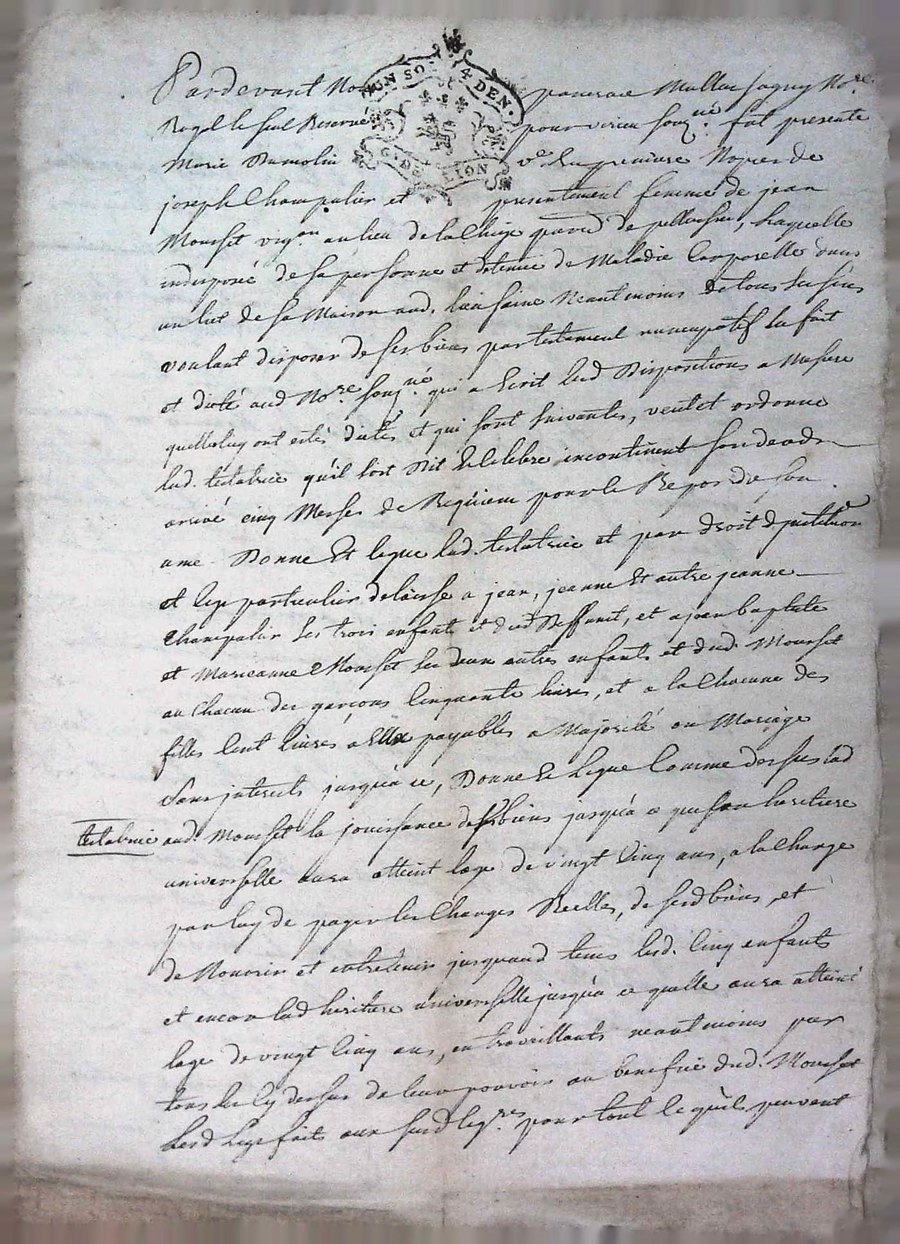 UN SO. 4 DEN.
G. DE LION
Pardevant No
Royal le seul Reservé pour virieu souz.né fut presente
Marie Dumolin v.e En premiere Nopces de
joseph Champalier et presentement femme de jean
Mousset vig.on au lieu de la Chieze par.e de pellussin, Laquelle
indisposée de sa personne et detenue de Maladie Corporelle dans
un lit de sa Maison aud. lieu saine Neantmoins de tous ses sens
voulant disposer de ses biens par testament nuncupatif La fait
et dicté aud No.re souz.né qui a Ecrit Lesd Dispositions a Mesure
quelles luy ont estés dictés et qui sont suivantes, veut et ordonne
lad. téstatrice qu'il soit Dit et Celebré incontinent son deceds
arrivé cinq Messes de Requiem pour le Repos de son
ame. Donne Et legue lad. testatrice et par droit d'jnstitution
et legs particulier delaisse a jean, jeanne Et autre jeanne
Champalier ses trois enfants et dud Deffunt, et a jean baptiste
et Marieanne Mousset ses deux autres enfants et dud. Mousset
au Chacun des garçons Cinquante livres, et a la Chacune des
filles Cent livres payables a Majorité ou Mariage
sans jnterests jusqu'a ce, Donne Et Legue Comme dessus lad
testatrice
aud. Mousset la jouissance de ses biens jusqu'a ce que son heritiere
universelle aura atteint l'age de vingt Cinq ans, a la Charge
par luy de payer les Charges Réelles, de sesd biens, et
de Nourir et entretenir jusquaud tems lesd. Cinq enfants
et encor lad heritiere universelle jusqu'a ce quelle aura atteint
lage de vingt Cinq ans, en travaillants neantmoins par
tous les cy dessus de leur pouvoir au benefice dud. Mousset
Lesd Legs faits aux susd leg.res pour tout ce qu'ils peuvent